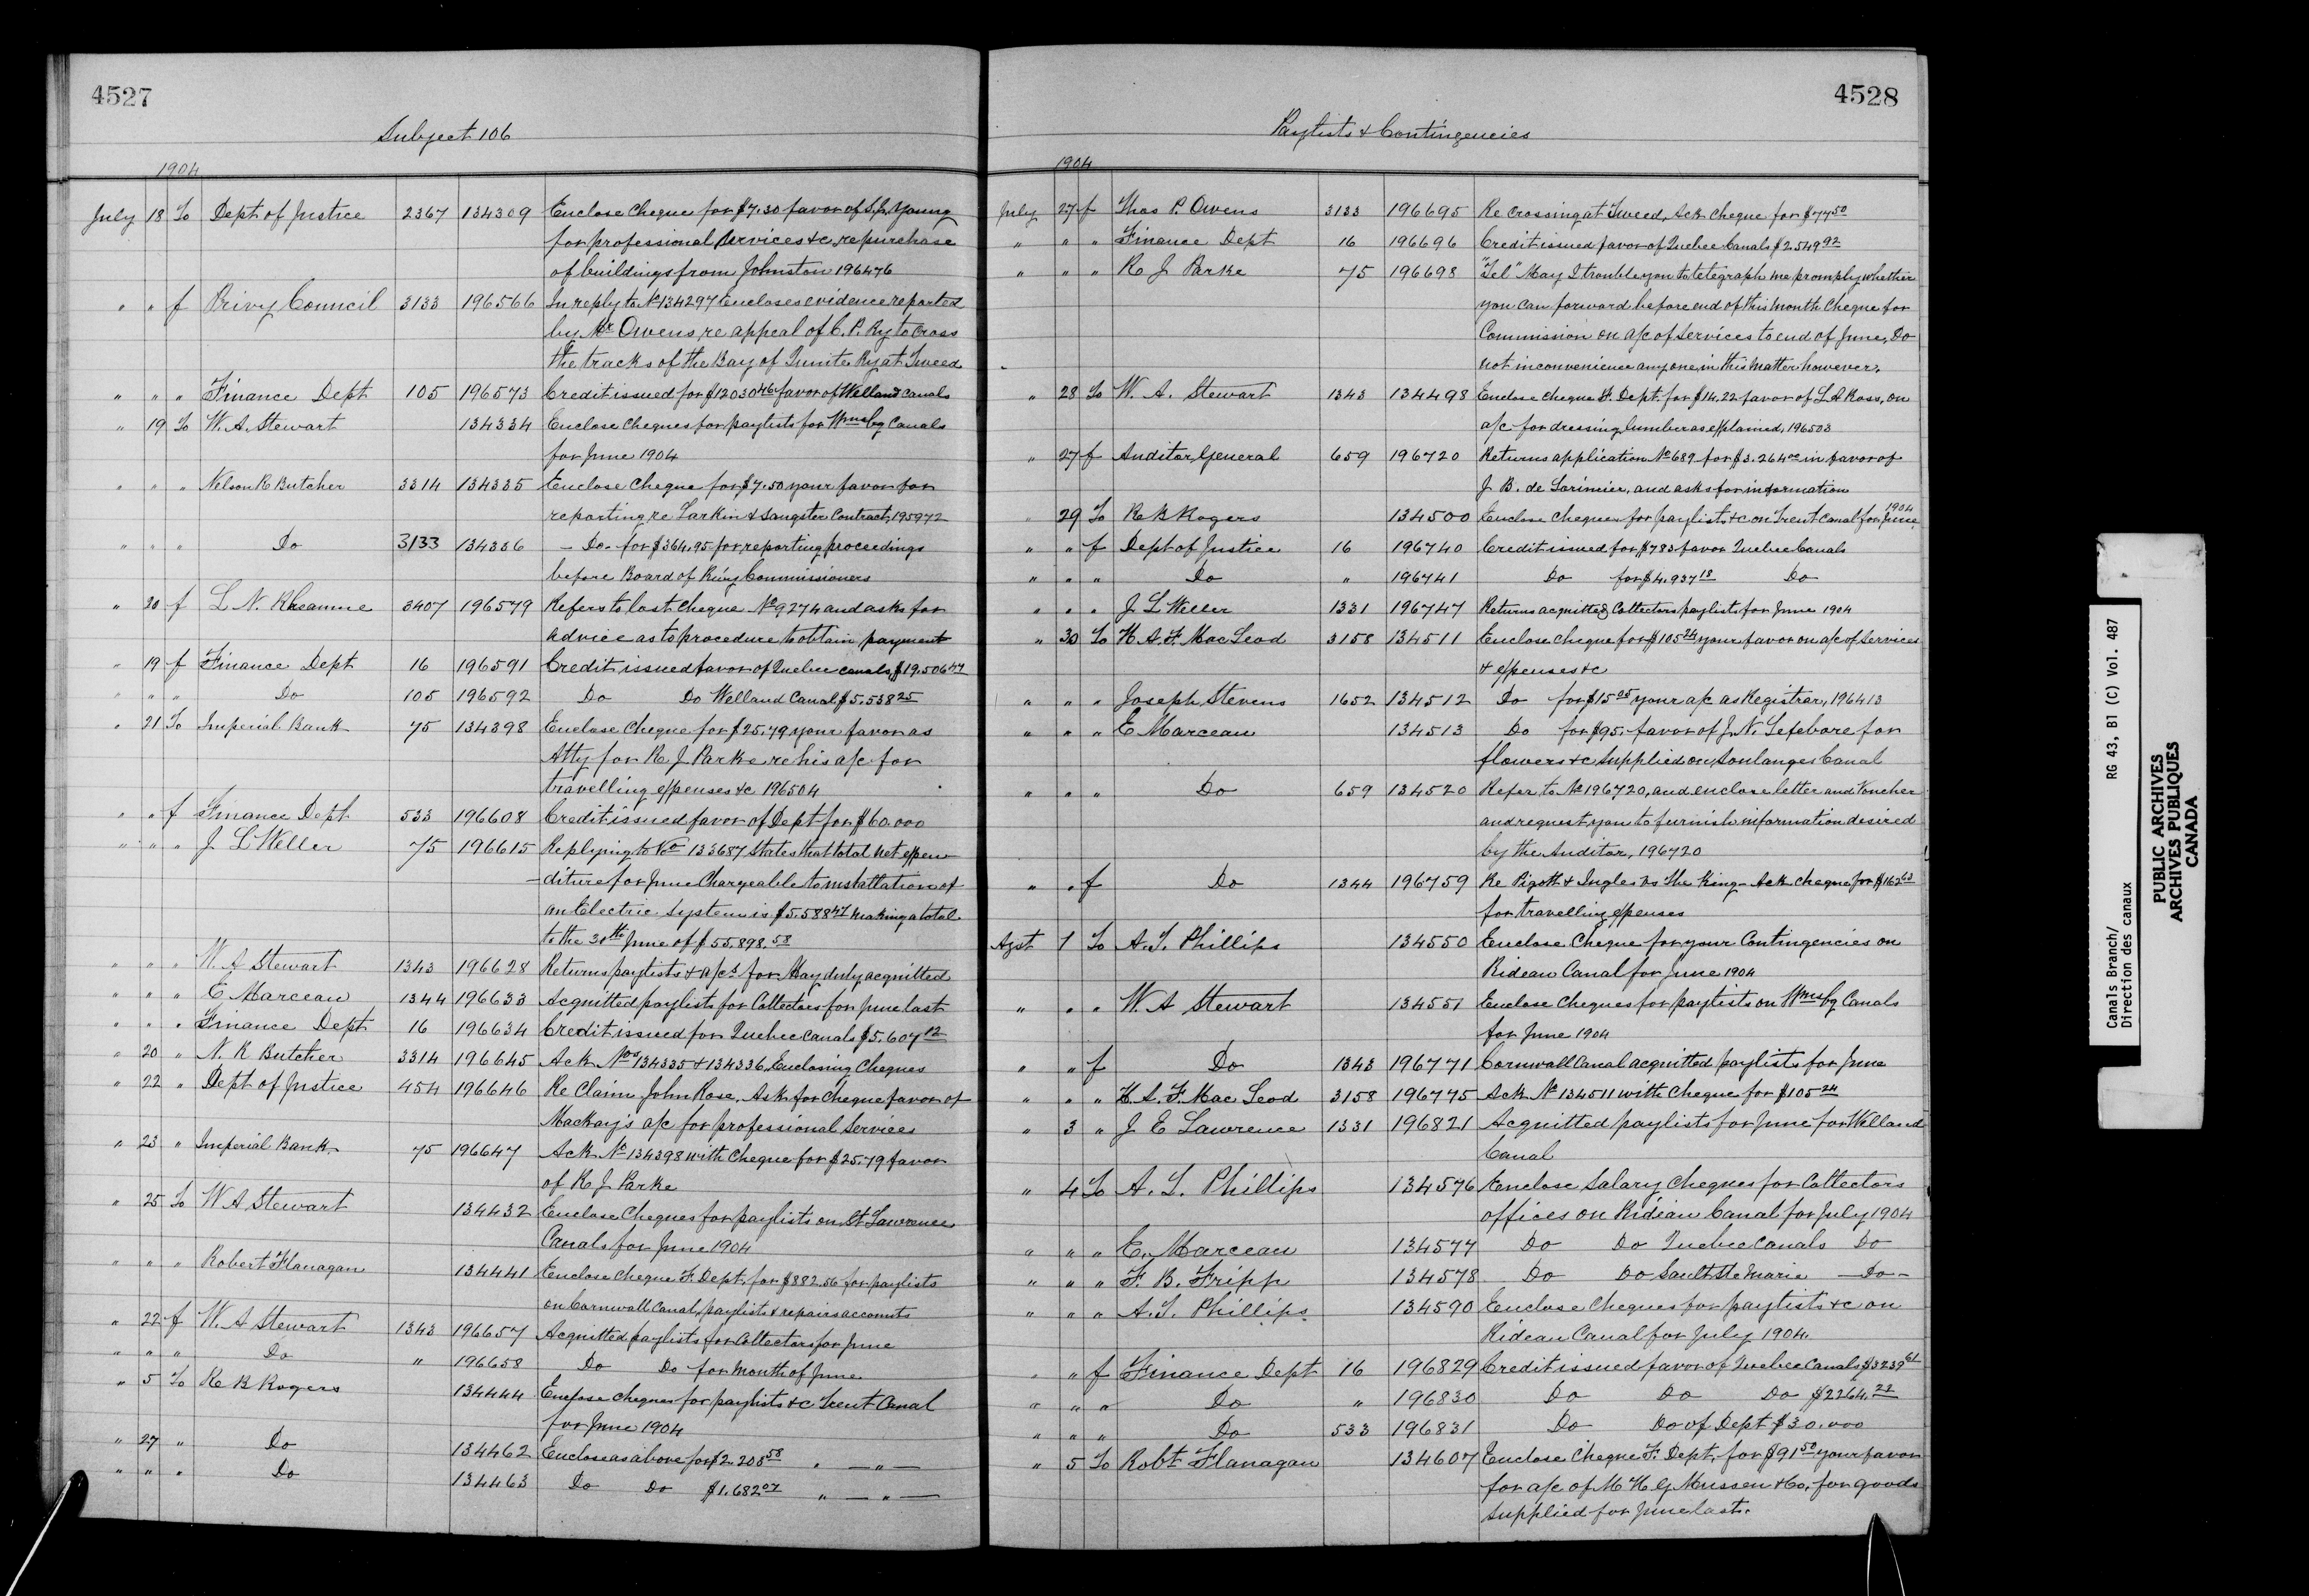 4527
Subject 106
1904
July 18 To Dept of Justice 2367 134309 Enclose Cheque for $7.30 favor of Young
for professional services &c, repurchase
of buildings from Johnston 196476
" " f Privy Council 3133 196566 In reply to No 134297 Encloses evidence reported
by Mr Owens, re appeal of C. P. Ry to Cross
the tracks of the Bay of Quinte Ry at Tweed
" " " Finance Dept 105 196573 Credit issued for $12030 46 favor of Welland Canals
" 19 To W. A. Stewart 134334 Enclose Cheques for paylists for Wmsbg Canals
for June 1904
" " " Nelson R Butcher 3314 134335 Enclose Cheque for $7.50 your favor for
reporting re Larkin & Sangster Contract, 195972
" " " Do 3133 134336 - Do - for $364.95 for reporting proceedings
before Board of Ry Commissioners
" 20 f L. N. Rheaume 3407 196579 Refers to lost cheque No 9274 and asks for
advice as to procedure to obtain payment
" 19 f Finance Dept 16 196591 Credit issued favor of Quebec Canals, $19.506 47
" " " Do 105 196592 Do Do Welland Canal $5.538 25
" 21 To Imperial Bank 75 134398 Enclose Cheque for $25.79 your favor as
Atty for R J Parke re his a/c for
travelling expenses &c 196504
" " f Finance Dept 533 196608 Credit issued favor of Dept for $60.000
" " " J L Weller 75 196615 Replying to No 133687 States that total net expen
-diture for June Chargeable to installation of
an Electric System is $5.588 47 making a total
to the 30th June of $55.898.58
" " " W. A Stewart 1343 196628 Returns paylists & a/cs for May duly acquitted
" " " E Marceau 1344 196633 Acquitted paylists for Collectors for June last
" " " Finance Dept 16 196634 Credit issued for Quebec Canals $5.607 12
" 20 " N. R Butcher 3314 196645 Ack Nos 134335 & 134336, Enclosing Cheques
" 22 " Dept of Justice 454 196646 Re Claim John Rose, Ask for cheque favor of
Mackay's a/c for professional Services
" 23 " Imperial Bank 75 196647 Ack No 134398 with Cheque for $25.79 favor
of R J Parke
" 25 To W A Stewart 134432 Enclose Cheques for paylists on St Lawrence
Canals for June 1904
" " " Robert Flanagan 134441 Enclose Cheque F. Dept. for $882.56 for paylists
on Cornwall Canal, paylists & repairs accounts
" 22 f W. A Stewart 1343 196657 Acquitted paylists for Collectors for June
" " " Do " 196658 Do Do for month of June
" 5 To R B Rogers 134444 Enclose Cheques for paylists &c Trent Canal
for June 1904
" 27 " Do 134462 Enclose as above for $2.208 58 " — " —
" " " Do 134463 Do Do $1.682 07 " — " —
4528
Paylists & Contingencies
1904
July 27 f Thos P. Owens 3133 196695 Re crossing at Tweed, Ack cheque for $77 50
" " " Finance Dept 16 196696 Credit issued favor of Quebec Canals $2.549 92
" " " R J Parke 75 196698 "Tel" May I trouble you to telegraph me promply whether
you can forward before end of this month cheque for
Commission on a/c of Services to end of June, Do
not inconvenience anyone in this matter however.
" 28 To W. A. Stewart 1343 134498 Enclose cheque F. Dept. for $14.22 favor of L A Ross, on
a/c for dressing lumber as explained, 196503
" 27 f Auditor General 659 196720 Returns application No 689 for $3.264 00 in favor of
J. B. de Lorimier, and asks for information
" 29 To R B Rogers 134500 Enclose cheques for paylists &c on Trent Canal for June 1904
" " f Dept of Justice 16 196740 Credit issued for $783 favor Quebec Canals
" " " Do " 196741 Do for $4.937 18 Do
" " " J L Weller 1331 196747 Returns acquitted Collectors paylists for June 1904
" 30 To H. A. F. MacLeod 3158 134511 Enclose cheque for $105 24 your favor on a/c of Services
& expenses &c
" " " Joseph Stevens 1652 134512 Do for $15 05 your a/c as Registrar, 196413
" " " E Marceau 134513 Do for $95. favor of J. N. Lefebvre for
flowers &c supplied on Soulanges Canal
" " " Do 659 134520 Refer to No 196720, and enclose letter and Voucher
and request you to furnish information desired
by the Auditor, 196720
" " f Do 1344 196759 Re Pigott & Ingles vs The King - Ack cheque for $162 63
for travelling expenses
Agst 1 To A. T. Phillips 134550 Enclose Cheque for your Contingencies on
Rideau Canal for June 1904
" " " W. A Stewart 134551 Enclose Cheques for paylists on Wmsbg Canals
for June 1904
" " f Do 1343 196771 Cornwall Canal acquitted paylists for June
" " " H. A. F. Mac Leod 3158 196775 Ack No 134511 with Cheque for $105 24
" 3 " J E Lawrence 1331 196821 Acquitted paylists for June for Welland
Canal
" 4 To A. T. Phillips 134576 Enclose Salary Cheques for Collectors
offices on Rideau Canal for July 1904
" " " E. Marceau 134577 Do Do Quebec Canals Do
" " " F. B. Fripp 134578 Do Do Sault Ste Marie — Do —
" " " A. T. Phillips 134590 Enclose Cheques for paylists &c on
Rideau Canal for July 1904.
" " f Finance Dept 16 196829 Credit issued favor of Quebec Canals $3239 61
" " " Do " 196830 Do Do Do $2264.22
" " " Do 533 196831 Do Do of Dept $30.000
" 5 To Robt Flanagan 134607 Enclose Cheque F. Dept. for $91 50 your favor
for a/c of Mussen & Co. for goods
supplied for June last.
Canals Branch/ RG 43, B1 (C) Vol. 487
Direction des canaux
PUBLIC ARCHIVES
ARCHIVES PUBLIQUES
CANADA